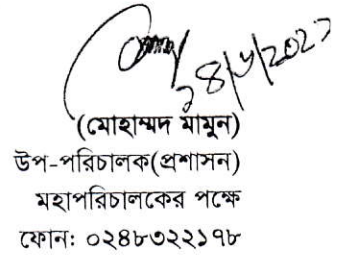 (মোহাম্মদ মামুন)
উপ-পরিচালক(প্রশাসন)
মহাপরিচালকের পক্ষে
ফোন: ০২৪৮৩২২১৭৮